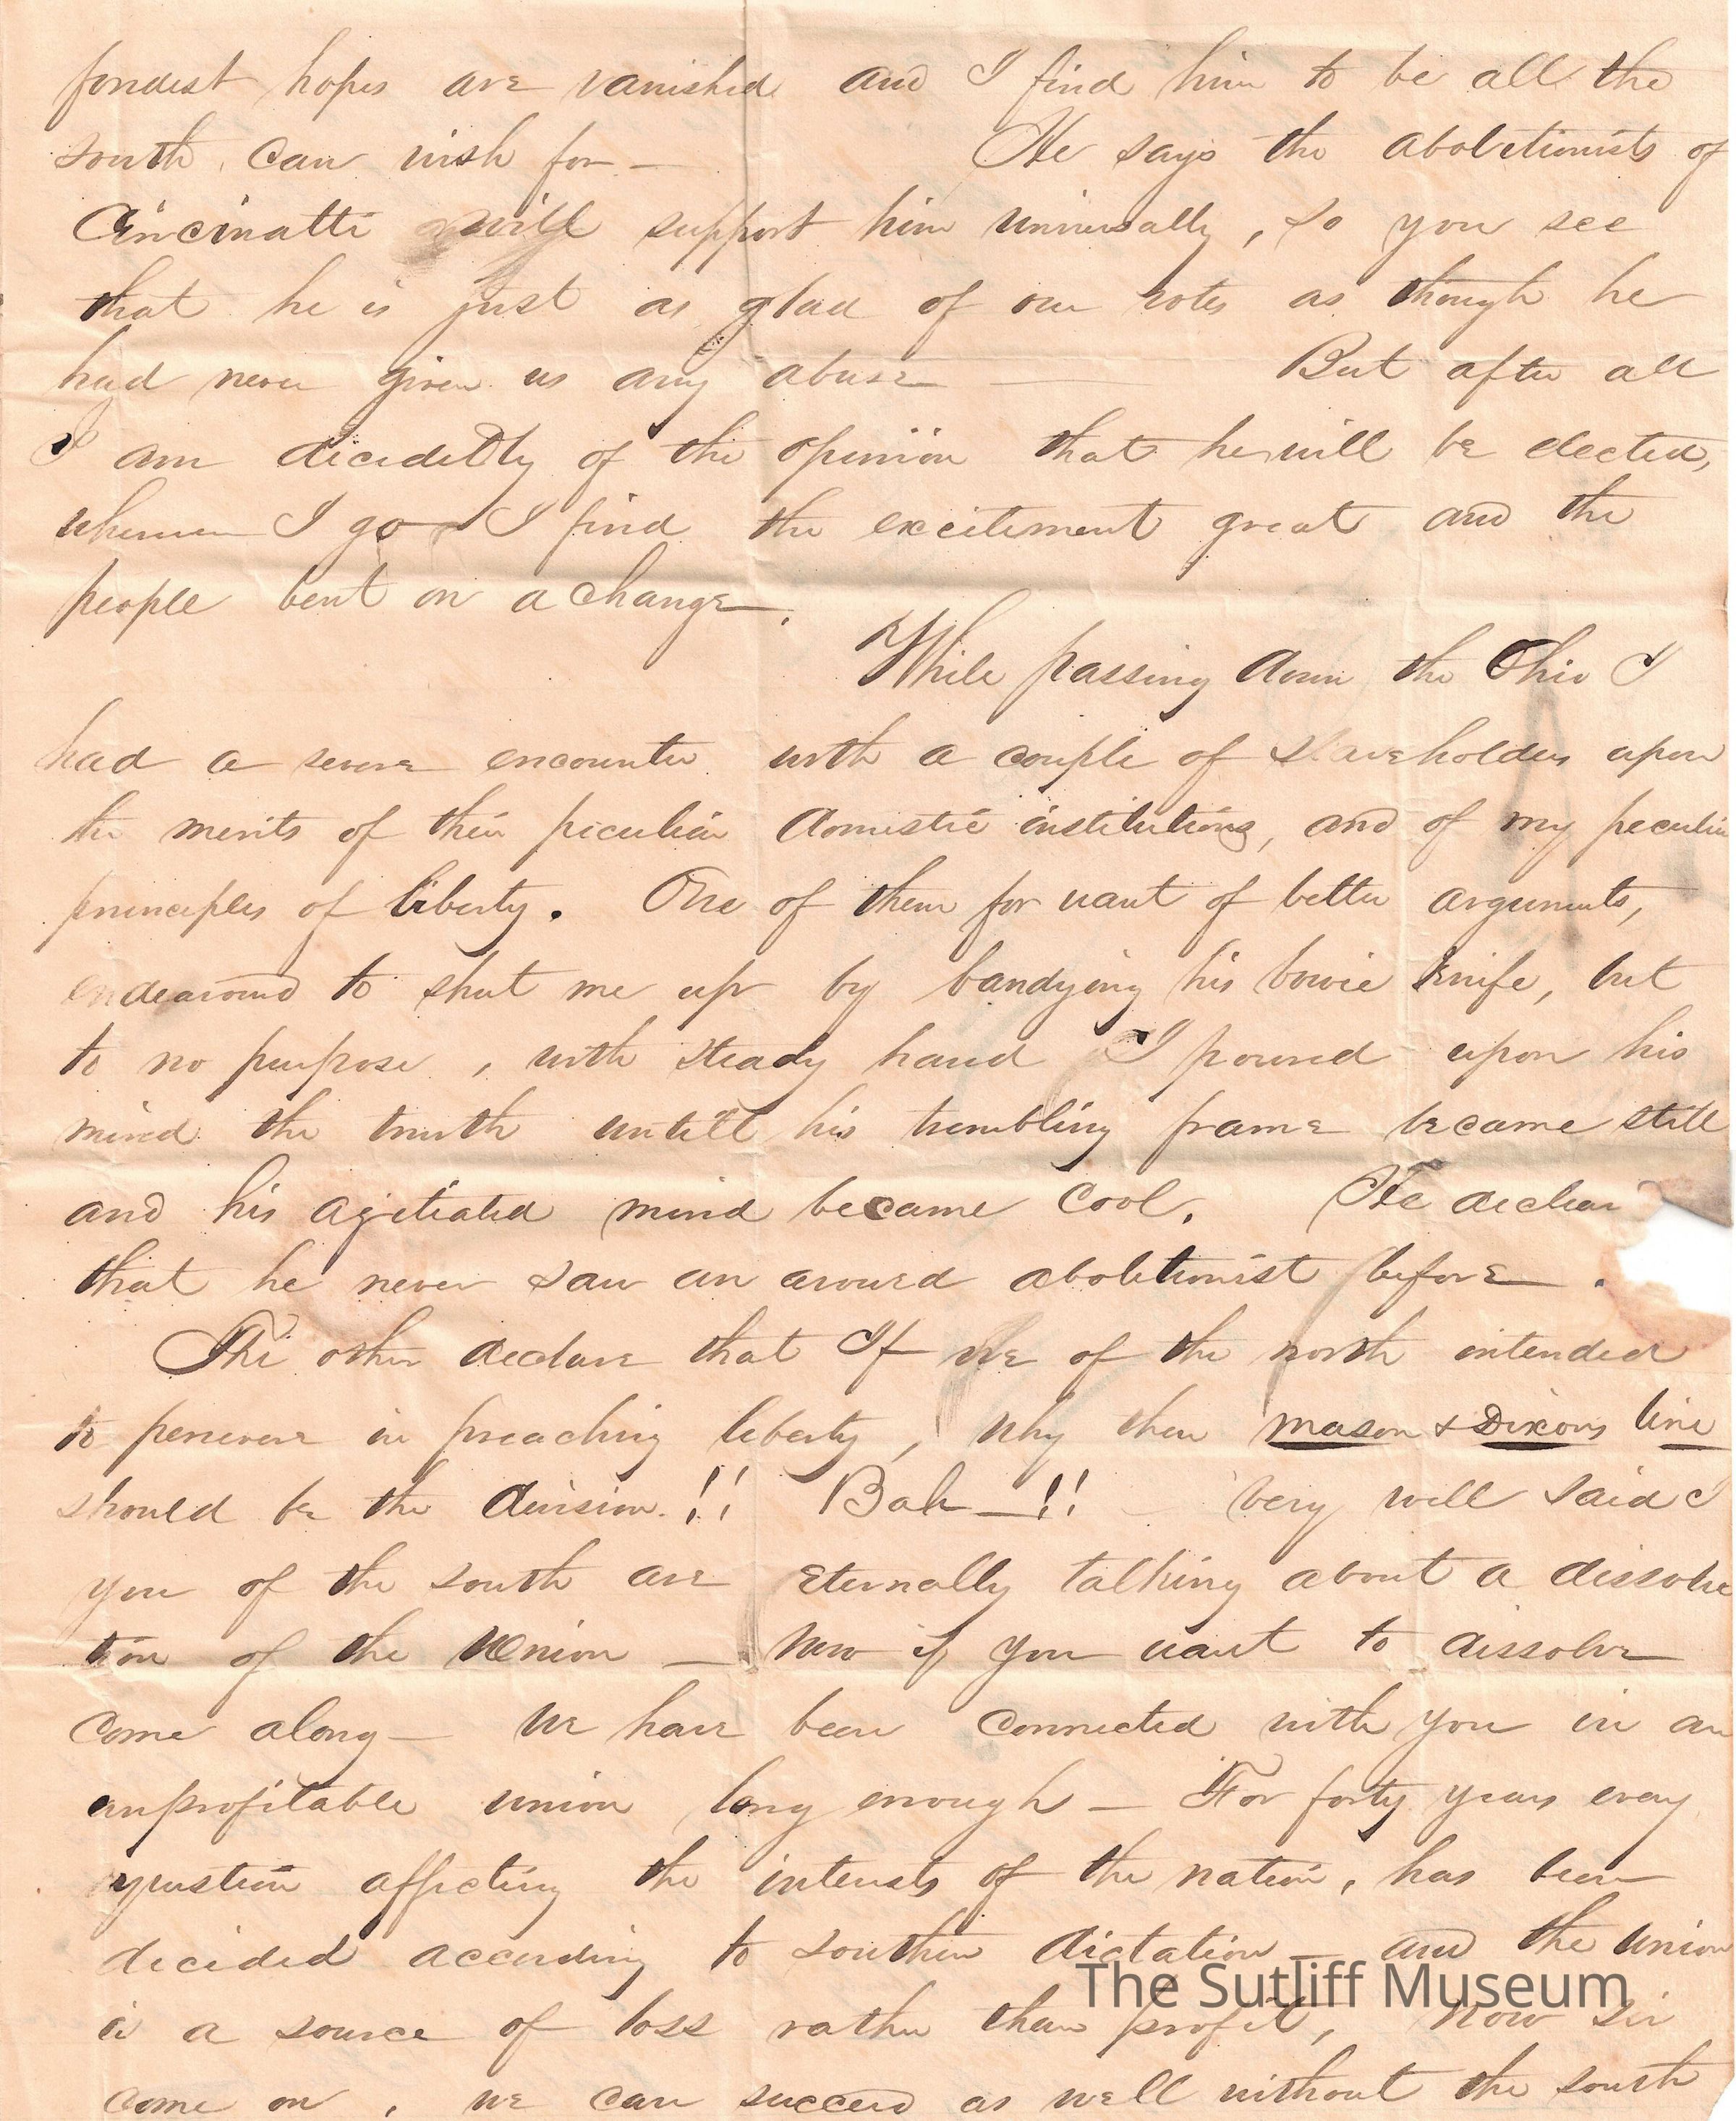 fondest hopes are vanished and I find him to be all the
south can wish for — He says the abolitionists of
Cincinatti will support him universally, so you see
that he is just as glad of our votes as though he
had never given us any abuse — But after all
I am decidedly of the opinion that he will be elected,
wherever I go I find the excitement great and the
people bent on a change.
While passing down the Ohio I
had a severe encounter with a couple of slaveholders upon
the merits of their peculiar domestic institutions, and of my peculiar
principles of liberty. One of them for want of better arguments,
endeavored to shut me up by bandying his bowie knife, but
to no purpose, with steady hand I poured upon his
mind the truth untill his trembling frame became still
and his agitated mind became cool. He declar
that he never saw an avowed abolitionist before.
The other declare that If we of the north intended
to persevere in preaching liberty, why then mason & Dixons line
should be the division.!! Bah—!! very well said I
you of the south are eternally talking about a dissolu
tion of the Union — now if you want to dissolve
come along — we have been connected with you in an
unprofitable union long enough — For forty years every
question affecting the interests of the nation, has been
decided according to southern dictation — and the union
is a source of loss rather than profit, now sir
come on, we can succeed as well without the south
The Sutliff Museum